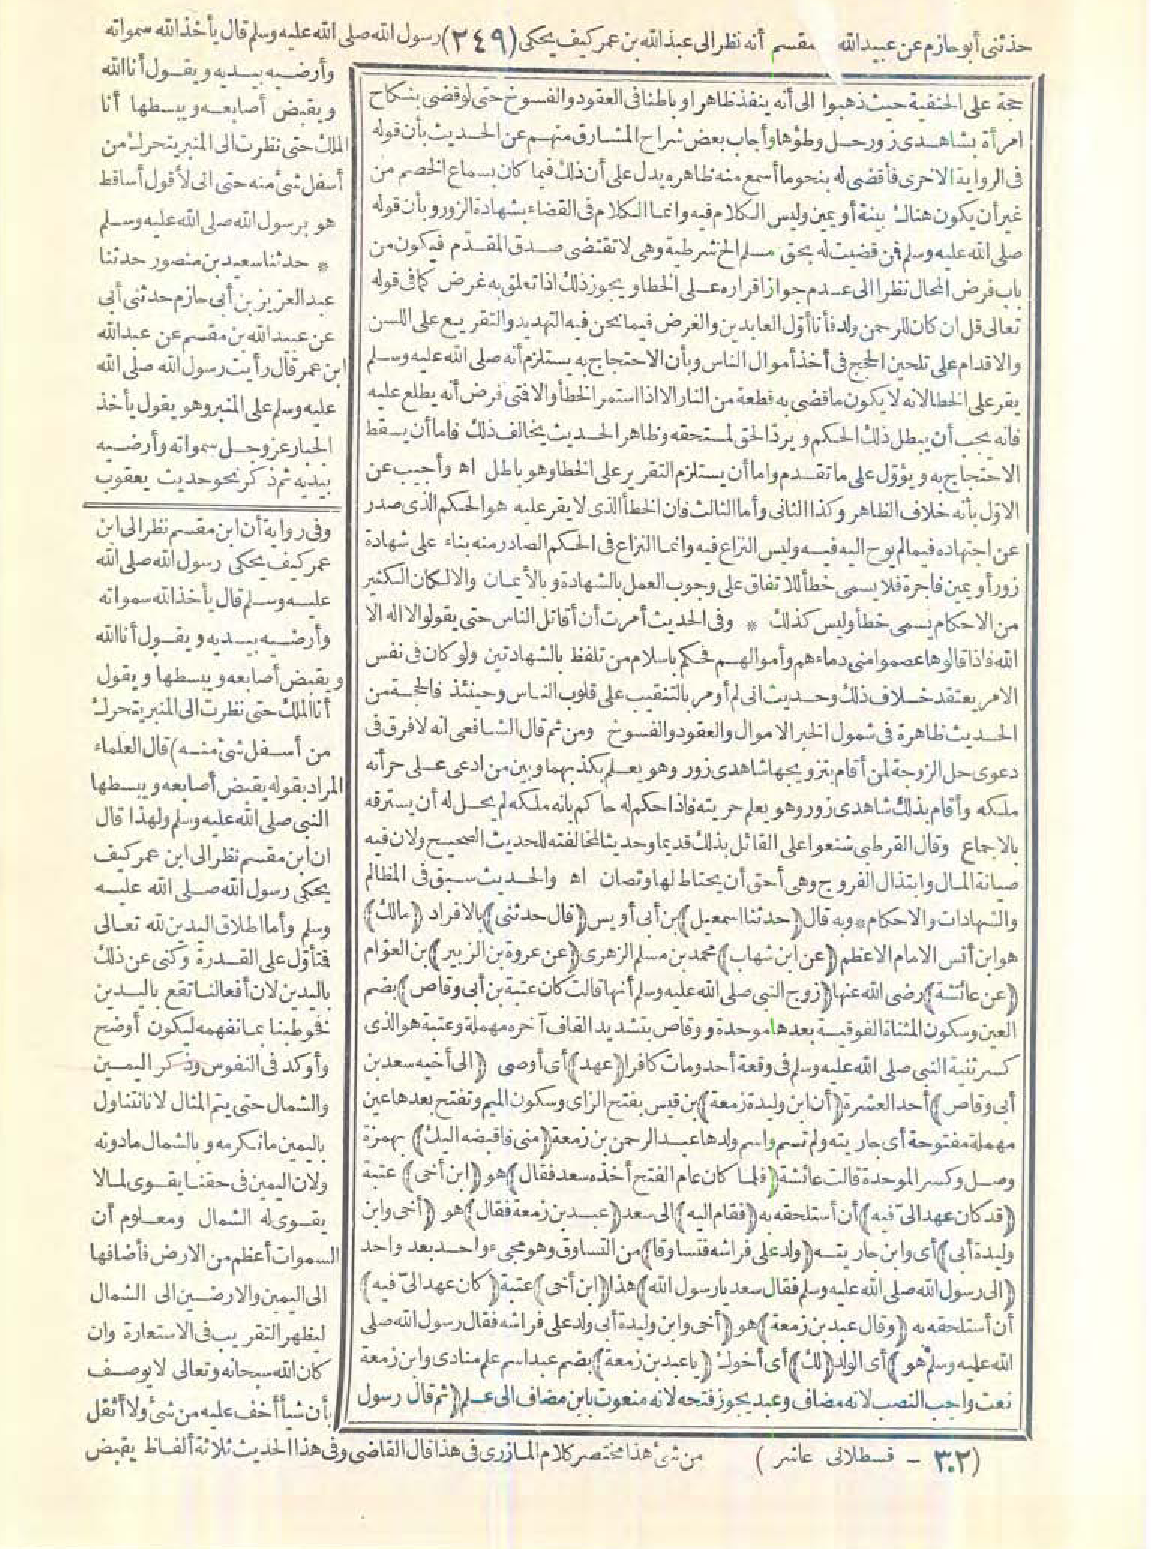 حدثنى أبو حازم عن عبيد الله مقسم أنه نظر الى عبد الله بن عمر كيف يحكى (٢٤٩) رسول الله صلى الله عليه وسلم قال يأخذ الله سمواته
حجة على الحنفية حيث ذهبوا الى أنه ينفذ ظاهرا وباطنا فى العقود والفسوخ حتى لو قضى بنكاح
امرأة بشاهدى زور حل وطؤها وأجاب بعض شراح المشارق منهم عن الحديث بأن قوله
فى الرواية الاخرى فأقضى له بنحو ما أسمع منه ظاهره يدل على أن ذلك فيما كان بسماع الخصم من
غير أن يكون هناك بينة أو يمين وليس الكلام فيه وانما الكلام فى القضاء بشهادة الزور وبأن قوله
صلى الله عليه وسلم فن قضيت له بحق مسلم الخ شرطية وهى لا تقتضى صدق المقدّم فيكون من
باب فرض المحال نظرا الى عدم جواز اقراره على الخطا ويجوز ذلك اذا تعلق به غرض كما فى قوله
تعالى قل ان كان للرحمن ولد فأنا أوّل العابدين والغرض فيما نحن فيه التهديد والتقريع على اللسن
والاقدام على تلحين الحجج فى أخذ أموال الناس وبأن الاحتجاج به يستلزم أنه صلى الله عليه وسلم
يقر على الخطا لانه لا يكون ما قضى به قطعة من النار الا اذا استمر الخطأ والا فتى فرض أنه يطلع عليه
فانه يجب أن يبطل ذلك الحكم ويردّ الحق لمستحقه وظاهر الحديث يخالف ذلك فاما أن يسقط
الاحتجاج به ويؤوّل على ما تقدم واما أن يستلزم التقرير على الخطا وهو باطل اه وأجيب عن
الاوّل بأنه خلاف الظاهر وكذا الثانى وأما الثالث فان الخطأ الذى لا يقر عليه هو الحكم الذى صدر
عن اجتهاده فيما لم يوح اليه فيه وليس النزاع فيه وانما النزاع فى الحكم الصادر منه بناء على شهادة
زور أو يمين فاجرة فلا يسمى خطأ للاتفاق على وجوب العمل بالشهادة وبالأيمان والا لكان الكثير
من الاحكام يسمى خطأ وليس كذلك * وفى الحديث أمرت أن أقاتل الناس حتى يقولوا لا اله الا
الله فاذا قالوها عصموا منى دماءهم وأموالهم فحكم باسلام من تلفظ بالشهادتين ولو كان فى نفس
الامر يعتقد خلاف ذلك وحديث انى لم أومر بالتنقيب على قلوب الناس وحينئذ فالحجة من
الحديث ظاهرة فى شمول الخبر الاموال والعقود والفسوخ ومن ثم قال الشافعى انه لا فرق فى
دعوى حل الزوجة لمن أقام بتزويجها شاهدى زور وهو يعلم بكذبهما وبين من ادعى على حر أنه
ملكه وأقام بذلك شاهدى زور وهو يعلم حريته فاذا حكم له حاكم بانه ملكه لم يحل له أن يسترقه
بالاجماع وقال القرطبى شنعوا على القائل بذلك قديما وحديثا لمخالفته للحديث الصحيح ولان فيه
صيانة المال وابتذال الفروج وهى أحق أن يحتاط لها وتصان اه والحديث سبق فى المظالم
والشهادات والاحكام * وبه قال (حدثنا اسمعيل) بن أبى أويس (قال حدثنى) بالافراد (مالك)
هو ابن أنس الامام الاعظم (عن ابن شهاب) محمد بن مسلم الزهرى (عن عروة بن الزبير) بن العوّام
(عن عائشة) رضى الله عنها (زوج النبى صلى الله عليه وسلم أنها قالت كان عتبة بن أبى وقاص) بضم
العين وسكون المثناة الفوقية بعدها موحدة ووقاص بتشديد القاف آخره مهملة وعتبة هو الذى
كسر ثنية النبى صلى الله عليه وسلم فى وقعة أحد ومات كافرا (عهد) أى أوصى (الى أخيه سعد بن
أبى وقاص) أحد العشرة (أن ابن وليدة زمعة) بن قيس بفتح الزاى وسكون الميم وتفتح بعدها عين
مهملة مفتوحة أى جاريته ولم تسم واسم ولدها عبد الرحمن بن زمعة (منى فاقبضه اليك) بهمزة
وصل وكسر الموحدة قالت عائشة (فلما كان عام الفتح أخذه سعد فقال) هو (ابن أخى) عتبة
(قد كان عهد الىّ فيه) أن أستلحقه به (فقام اليه) الى سعد (عبد بن زمعة فقال) هو (أخى وابن
وليدة أبى) أى وابن جاريته (ولد على فراشه فتساوقا) من التساوق وهو مجىء واحد بعد واحد
(الى رسول الله صلى الله عليه وسلم فقال سعد يا رسول الله) هذا (ابن أخى) عتبة (كان عهد الىّ فيه)
أن أستلحقه به (وقال عبد بن زمعة) هو (أخى وابن وليدة أبى ولد على فراشه فقال رسول الله صلى
الله عليه وسلم هو) أى الولد (لك) أى أخوك (يا عبد بن زمعة) بضم عبد اسم علم منادى وابن زمعة
نعت واجب النصب لانه مضاف وعبد يجوز فتحه لانه منعوت بابن مضاف الى علم (ثم قال رسول
وأرضيه بيديه ويقول أنا الله
ويقبض أصابعه ويبسطها أنا
الملك حتى نظرت الى المنبر يتحرك من
أسفل شئ منه حتى انى لأقول أساقط
هو برسول الله صلى الله عليه وسلم
* حدثنا سعيد بن منصور حدثنا
عبد العزيز بن أبى حازم حدثنى أبى
عن عبيد الله بن مقسم عن عبد الله
ابن عمر قال رأيت رسول الله صلى الله
عليه وسلم على المنبر وهو يقول يأخذ
الجبار عز وجل سمواته وأرضيه
بيديه ثم ذكر نحو حديث يعقوب
وفى رواية أن ابن مقسم نظر الى ابن
عمر كيف يحكى رسول الله صلى الله
عليه وسلم قال يأخذ الله سمواته
وأرضيه بيديه ويقول أنا الله
ويقبض أصابعه ويبسطها ويقول
أنا الملك حتى نظرت الى المنبر يتحرك
من أسفل شئ منه) قال العلماء
المراد بقوله يقبض أصابعه ويبسطها
النبى صلى الله عليه وسلم ولهذا قال
ان ابن مقسم نظر الى ابن عمر كيف
يحكى رسول الله صلى الله عليه
وسلم وأما اطلاق اليدين لله تعالى
فتأوّل على القدرة وكنى عن ذلك
باليدين لان أفعالنا تقع باليدين
فخوطبنا بما نفهمه ليكون أوضح
وأوكد فى النفوس وذكر اليمين
والشمال حتى يتم المثال لانا نتناول
باليمين ما نكرمه وبالشمال ما دونه
ولان اليمين فى حقنا يقوى لما لا
يقوى له الشمال ومعلوم أن
السموات أعظم من الارض فأضافها
الى اليمين والارضين الى الشمال
ليظهر التقريب فى الاستعارة وان
كان الله سبحانه وتعالى لا يوصف
بأن شيأ أخف عليه من شئ ولا أثقل
من شئ هذا مختصر كلام المازرى فى هذا قال القاضى وفى هذا الحديث ثلاثة ألفاظ يقبض
(٣٢ - قسطلانى عاشر)